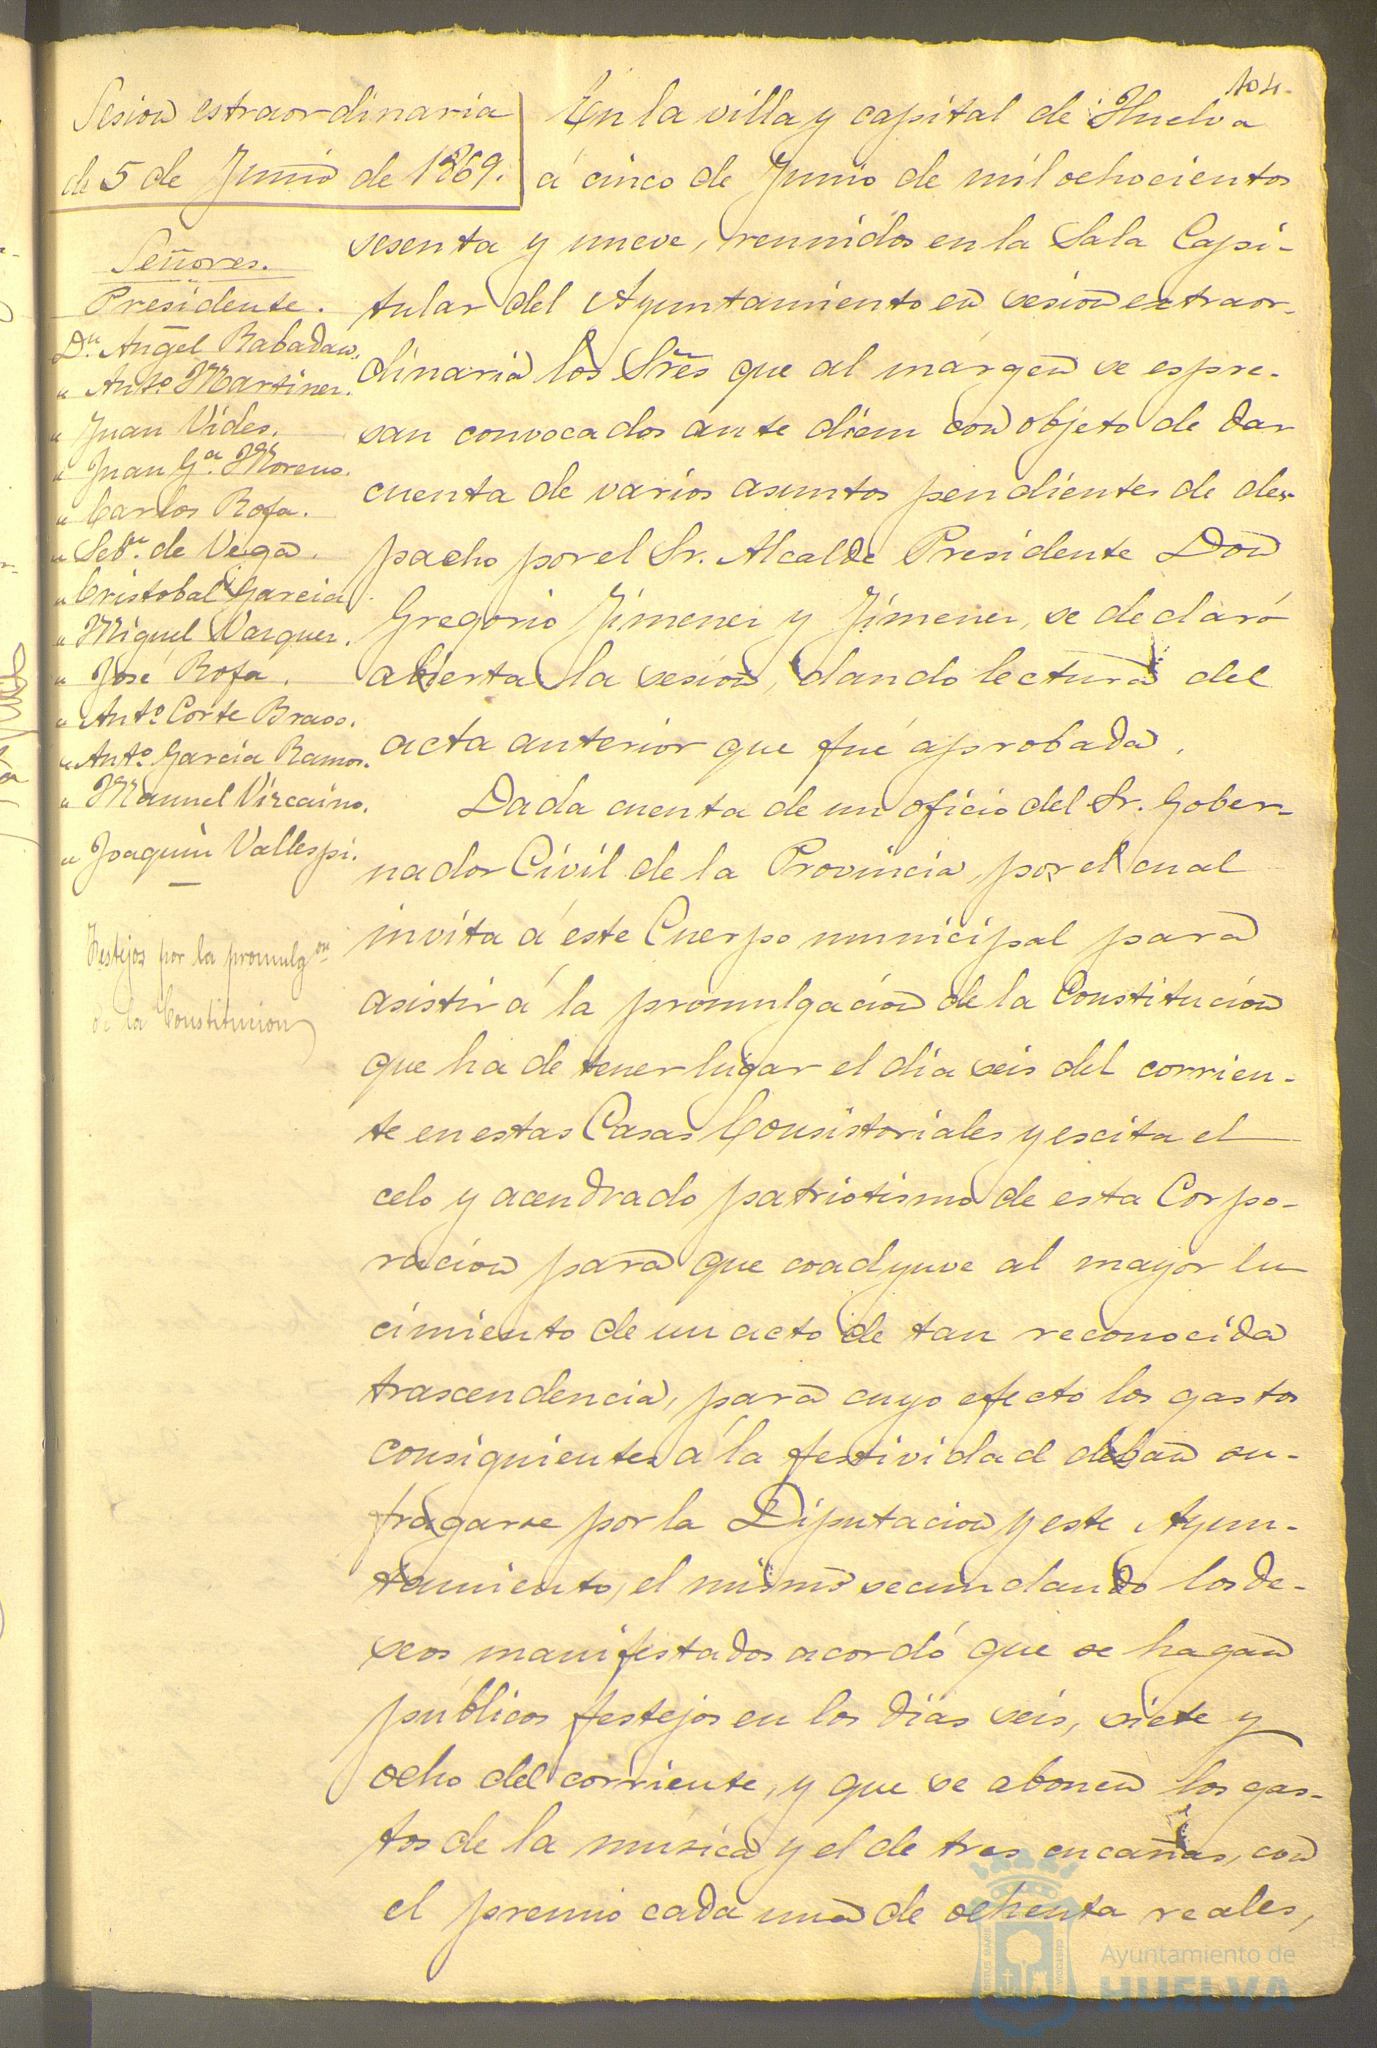 104.
Sesion estraordinaria
de 5 de Junio de 1869.
Señores.
Presidente.
Dn. Angel Rabadan.
" Anto. Martinez.
" Juan Vides.
" Juan Ga. Moreno.
" Carlos Rofa.
" Sebn. de Vega.
" Cristobal Garcia
" Miguel Vazquez.
" José Rofa.
" Anto. Corte Bravo.
" Anto. Garcia Ramos.
" Manuel Vizcaino.
" Joaquin Vallespi.
Festejos por la promulgon
de la Constitucion
En la villa y capital de Huelva
á cinco de Junio de mil ochocientos
sesenta y nueve, reunidos en la Sala Capi-
tular del Ayuntamiento en sesion extraor-
dinaria los Sres que al márgen se espre-
san convocados ante diem con objeto de dar
cuenta de varios asuntos pendientes de des-
pacho por el Sr. Alcalde Presidente Don
Gregorio Jimenez y Jimenez, se declaró
abierta la sesion, dando lectura del
acta anterior que fué aprobada.
Dada cuenta de un oficio del Sr. Gober-
nador Civil de la Provincia, por el cual
invita á este Cuerpo municipal para
asistir á la promulgacion de la Constitucion
que ha de tener lugar el dia seis del corrien-
te en estas Casas Consistoriales y escita el
celo y acendrado patriotismo de esta Corpo-
racion para que coadyuve al mayor lu
cimiento de un acto de tan reconocida
trascendencia, para cuyo efecto los gastos
consiguientes á la festividad deban su-
fragarse por la Diputacion y este Ayun-
tamiento, el mismo secundando los de-
seos manifestados acordó que se hagan
públicos festejos en los dias seis, siete y
ocho del corriente, y que se abonen los gas-
tos de la musica y el de tres cucañas, con
el premio cada una de ochenta reales,
Ayuntamiento de
HUELVA